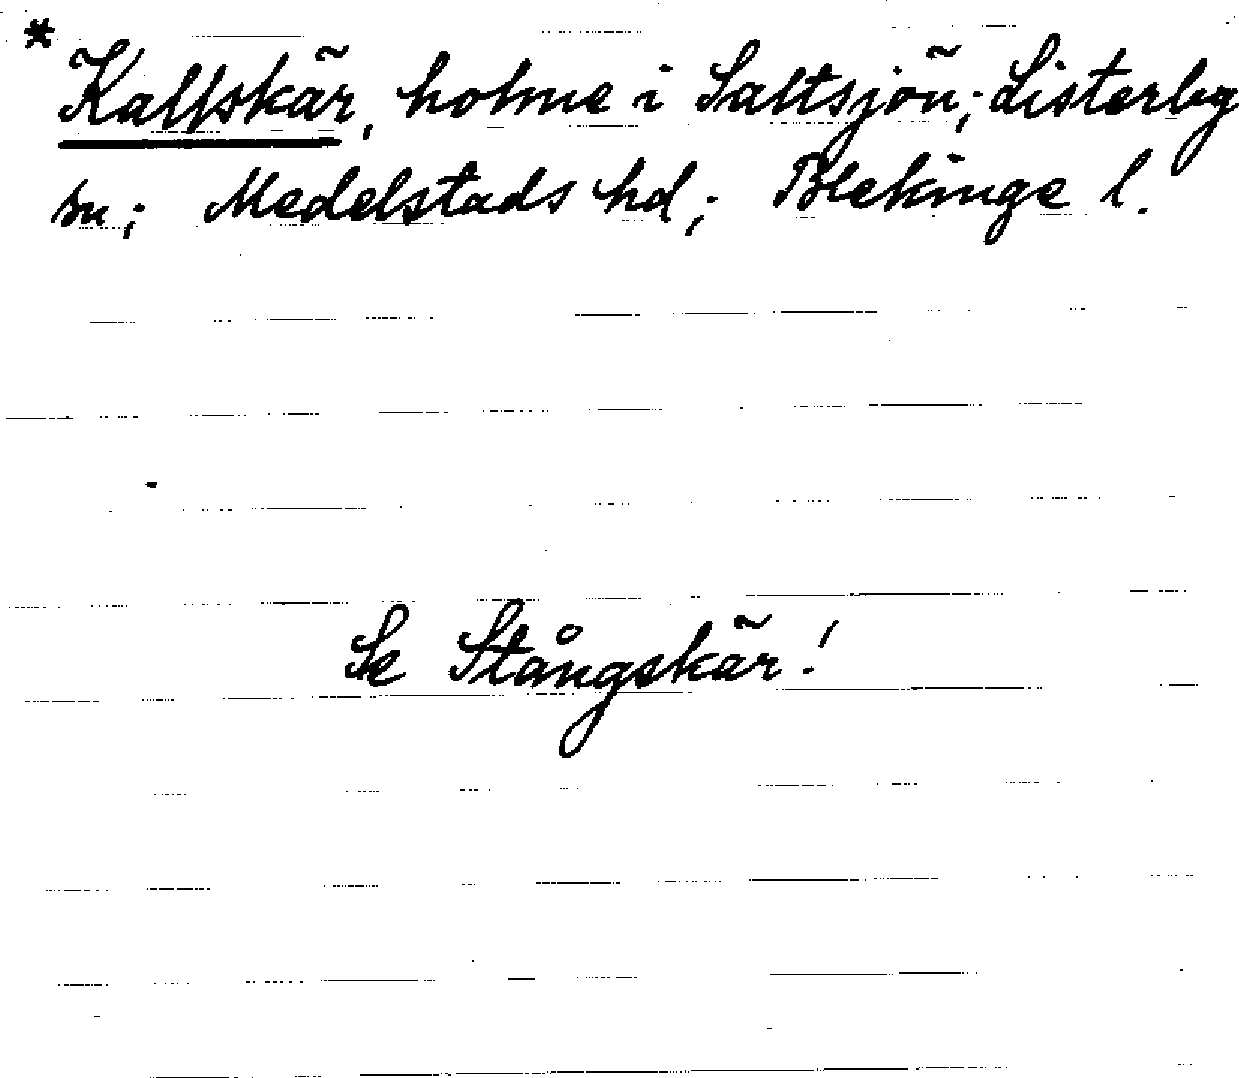 * Kalfskär, holme i Saltsjön; Listerby
sn; Medelstads hd; Blekinge l.
Se Stångskär!